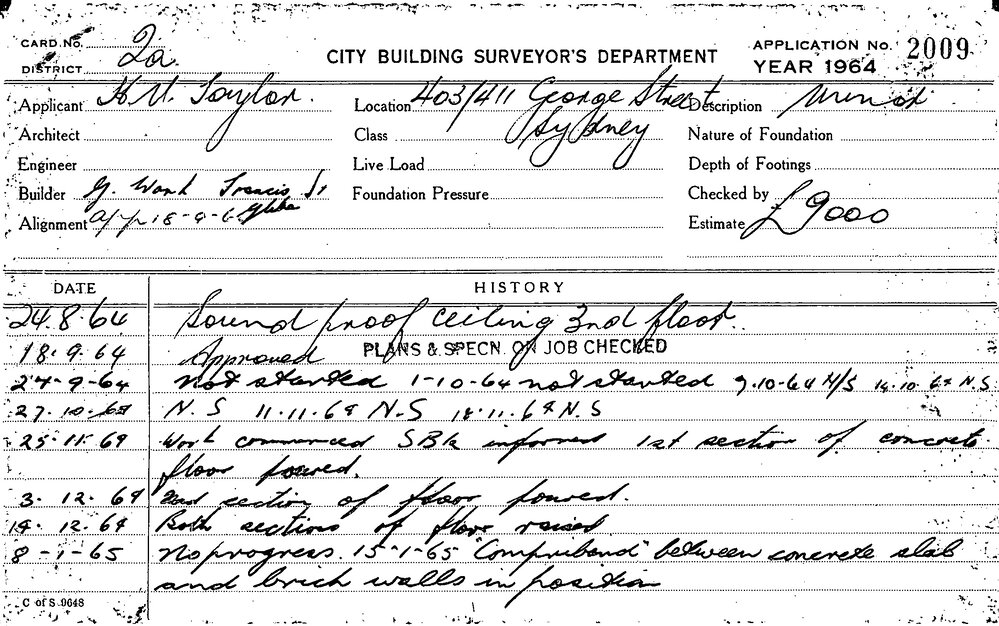 CARD No. 2a
DISTRICT
CITY BUILDING SURVEYOR'S DEPARTMENT
APPLICATION No. 2009
YEAR 1964
Applicant H. V. Taylor.
Location 403/411 George Street
Sydney
Description Minor
Architect
Class
Nature of Foundation
Engineer
Live Load
Depth of Footings
Builder G. Wark Francis St
Glebe
Foundation Pressure
Checked by
Alignment 18-9-6
Estimate £9000
DATE
HISTORY
24.8.64 Sound proof ceiling 3nd floor.
18.9.64 Approved PLANS & SPECN. ON JOB CHECKED
24-9-64 Not started 1-10-64 not started 9.10-64 N/S 14.10.64 N.S
27.10.64 N.S 11.11.64 N.S 18.11.64 N.S
25.11.64 Work commenced informed 1st section of concrete
floor poured.
3.12.64 2nd section of floor poured.
14.12.64 Both sections of floor raised
8-1-65 No progress. 15-1-65 "Compriband" between concrete slab
and brick walls in position
C of S 9648